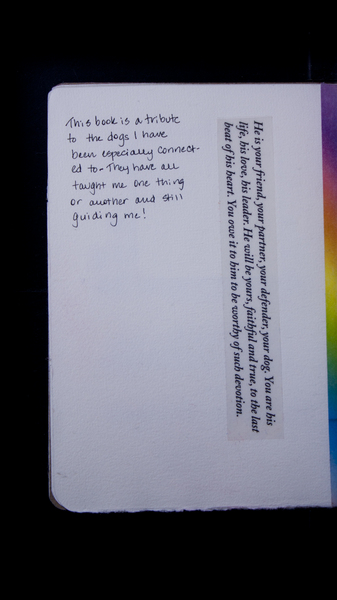 This book is a tribute
to the dogs I have
been especially connect-
ed to - They have all
taught me one thing
or another and still
guiding me!
He is your friend, your partner, your defender, your dog. You are his
life, his love, his leader. He will be yours, faithful and true, to the last
beat of his heart. You owe it to him to be worthy of such devotion.